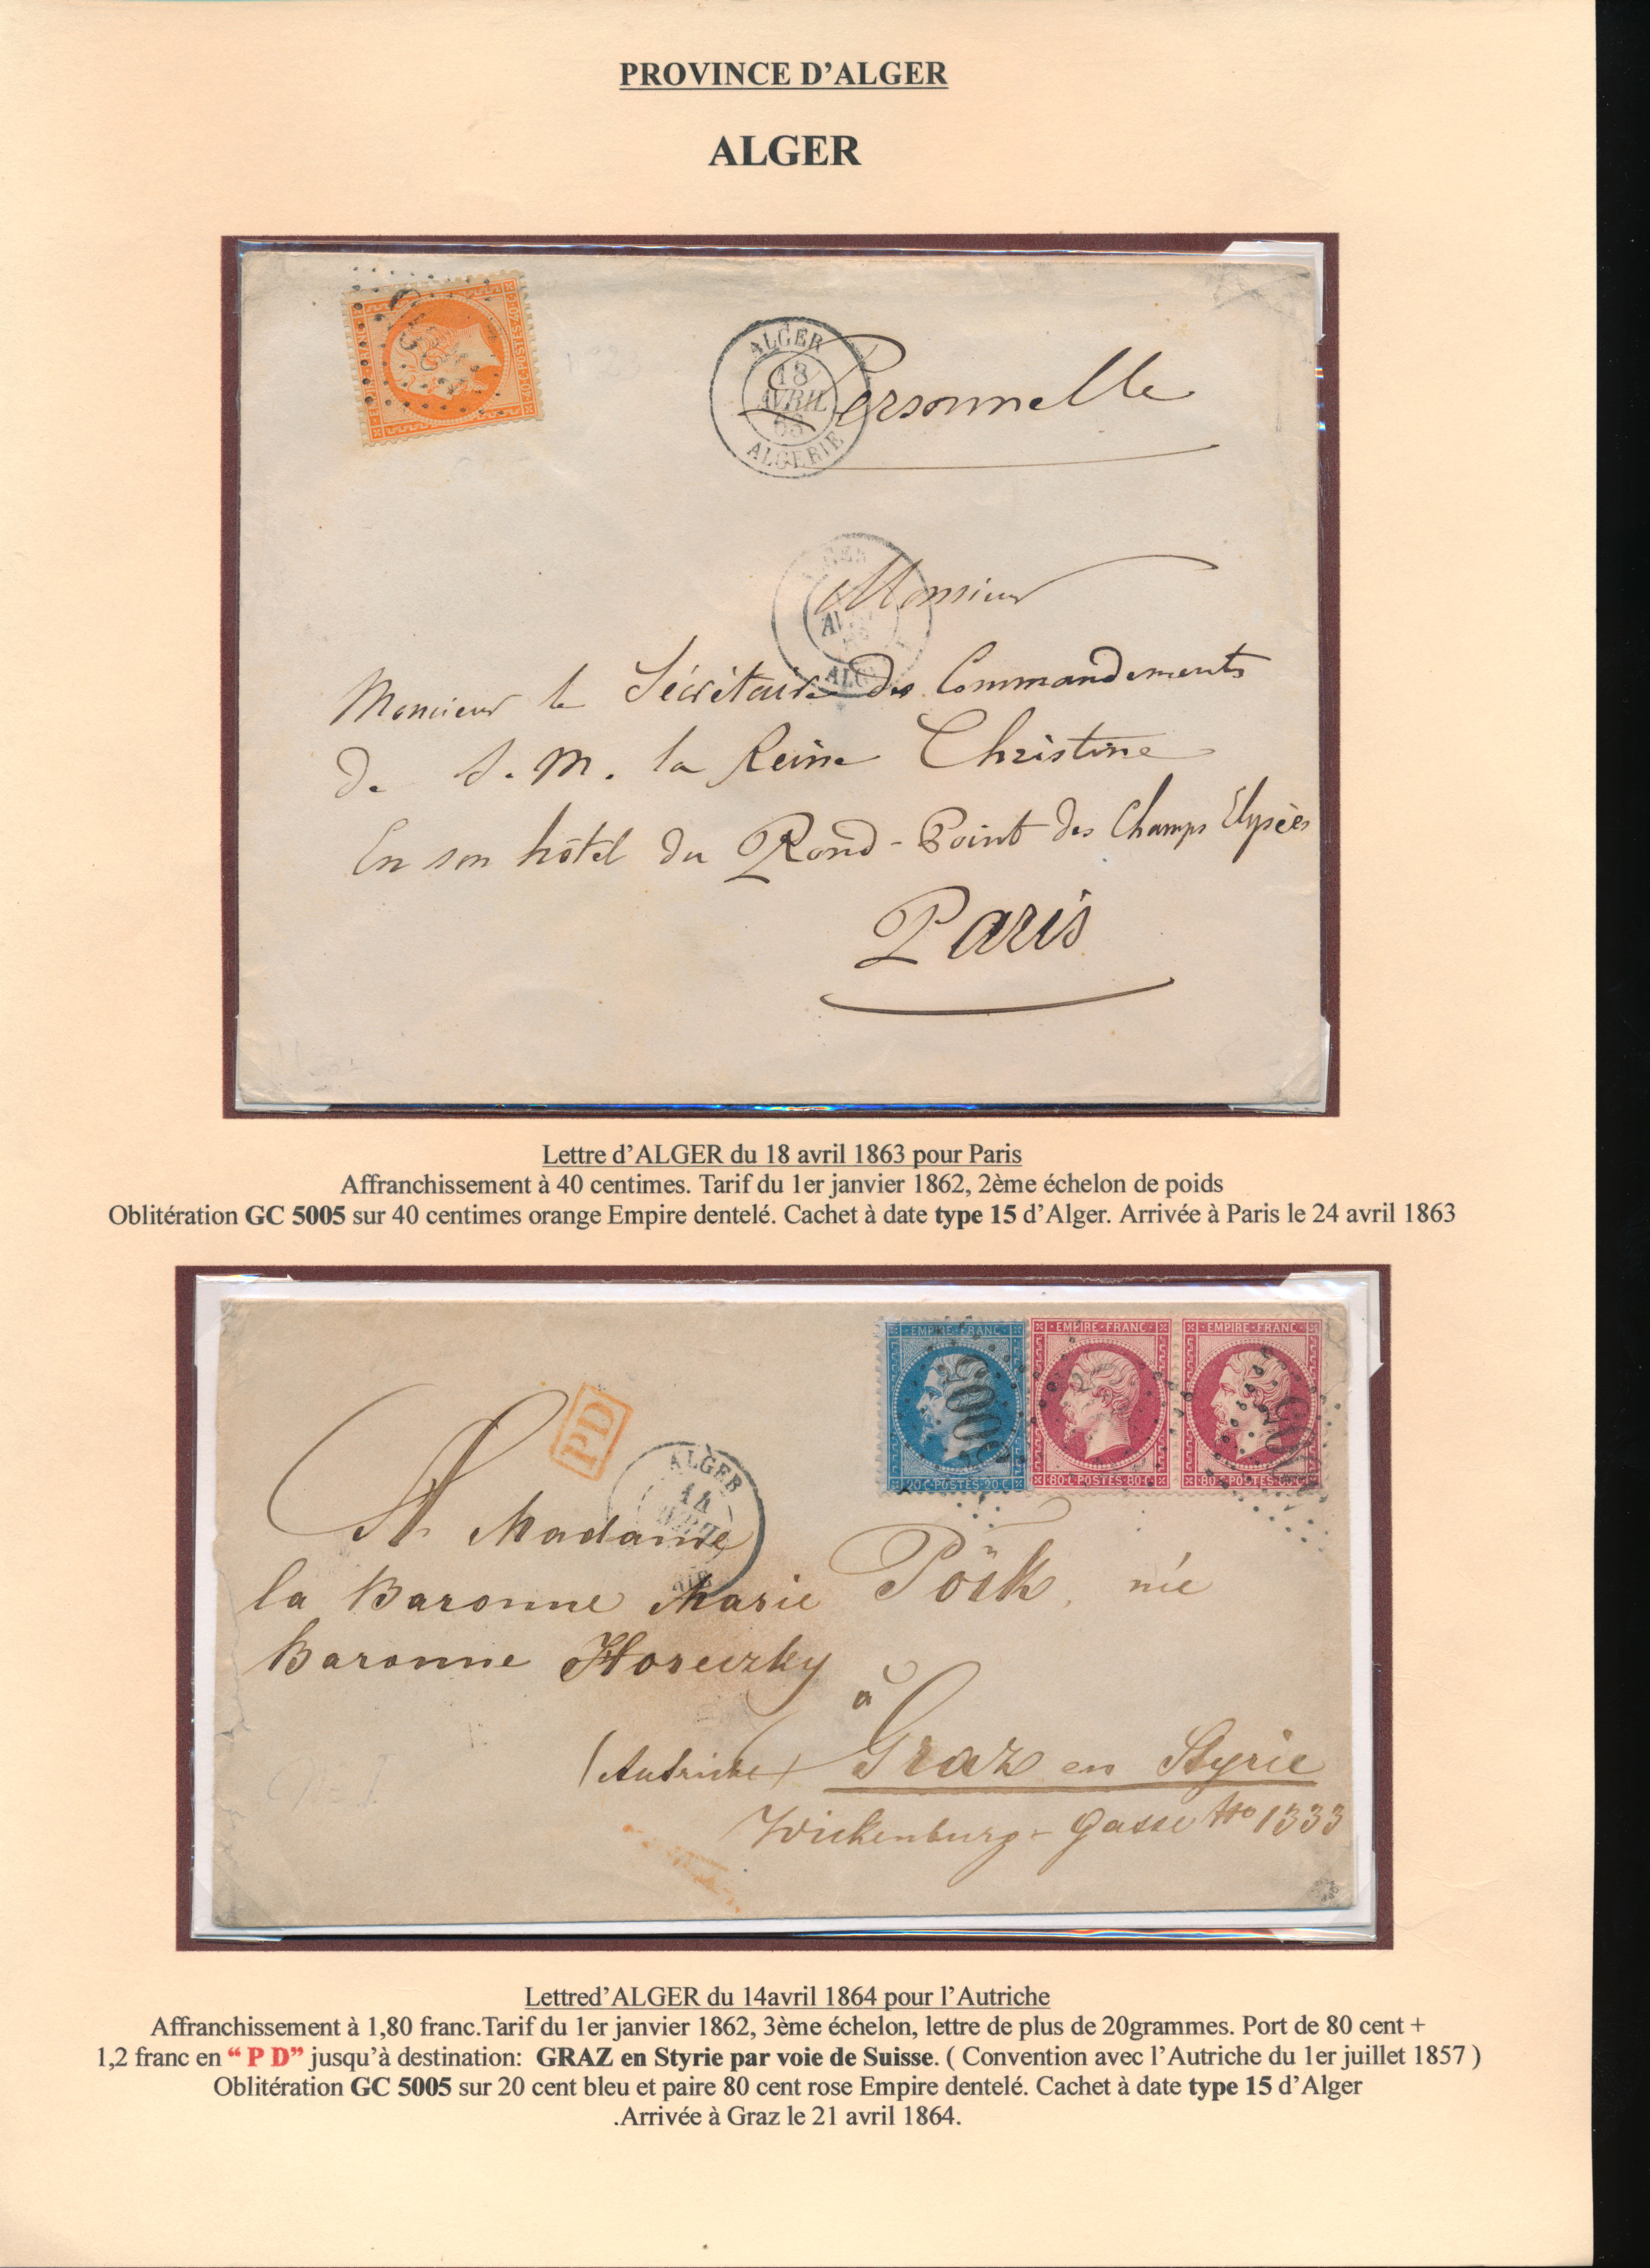 PROVINCE D'ALGER
ALGER
EMPIRE · FRANC
40·C·POSTES·40·C
ALGER
18
AVRIL
63
ALGERIE
Personnelle
Monsieur
Monsieur le Sécrétaire des Commandements
de S. M. la Reine Christine
En son hôtel du Rond-Point des Champs Elysées
Paris
Lettre d'ALGER du 18 avril 1863 pour Paris
Affranchissement à 40 centimes. Tarif du 1er janvier 1862, 2ème échelon de poids
Oblitération GC 5005 sur 40 centimes orange Empire dentelé. Cachet à date type 15 d'Alger. Arrivée à Paris le 24 avril 1863
EMPIRE·FRANC· EMPIRE·FRANC· EMPIRE·FRANC·
5005
20·C·POSTES·20·C 80·C·POSTES·80·C 80·C·POSTES·80·C
PD
ALGER
14
AVRIL
A Madame
la Baronne Marie Pöck, née
Baronne
à
(Autriche) Graz en Styrie
Wickenburg-gasse No 1333
Lettred'ALGER du 14avril 1864 pour l'Autriche
Affranchissement à 1,80 franc.Tarif du 1er janvier 1862, 3ème échelon, lettre de plus de 20grammes. Port de 80 cent +
1,2 franc en “ P D” jusqu'à destination: GRAZ en Styrie par voie de Suisse. ( Convention avec l'Autriche du 1er juillet 1857 )
Oblitération GC 5005 sur 20 cent bleu et paire 80 cent rose Empire dentelé. Cachet à date type 15 d'Alger
.Arrivée à Graz le 21 avril 1864.